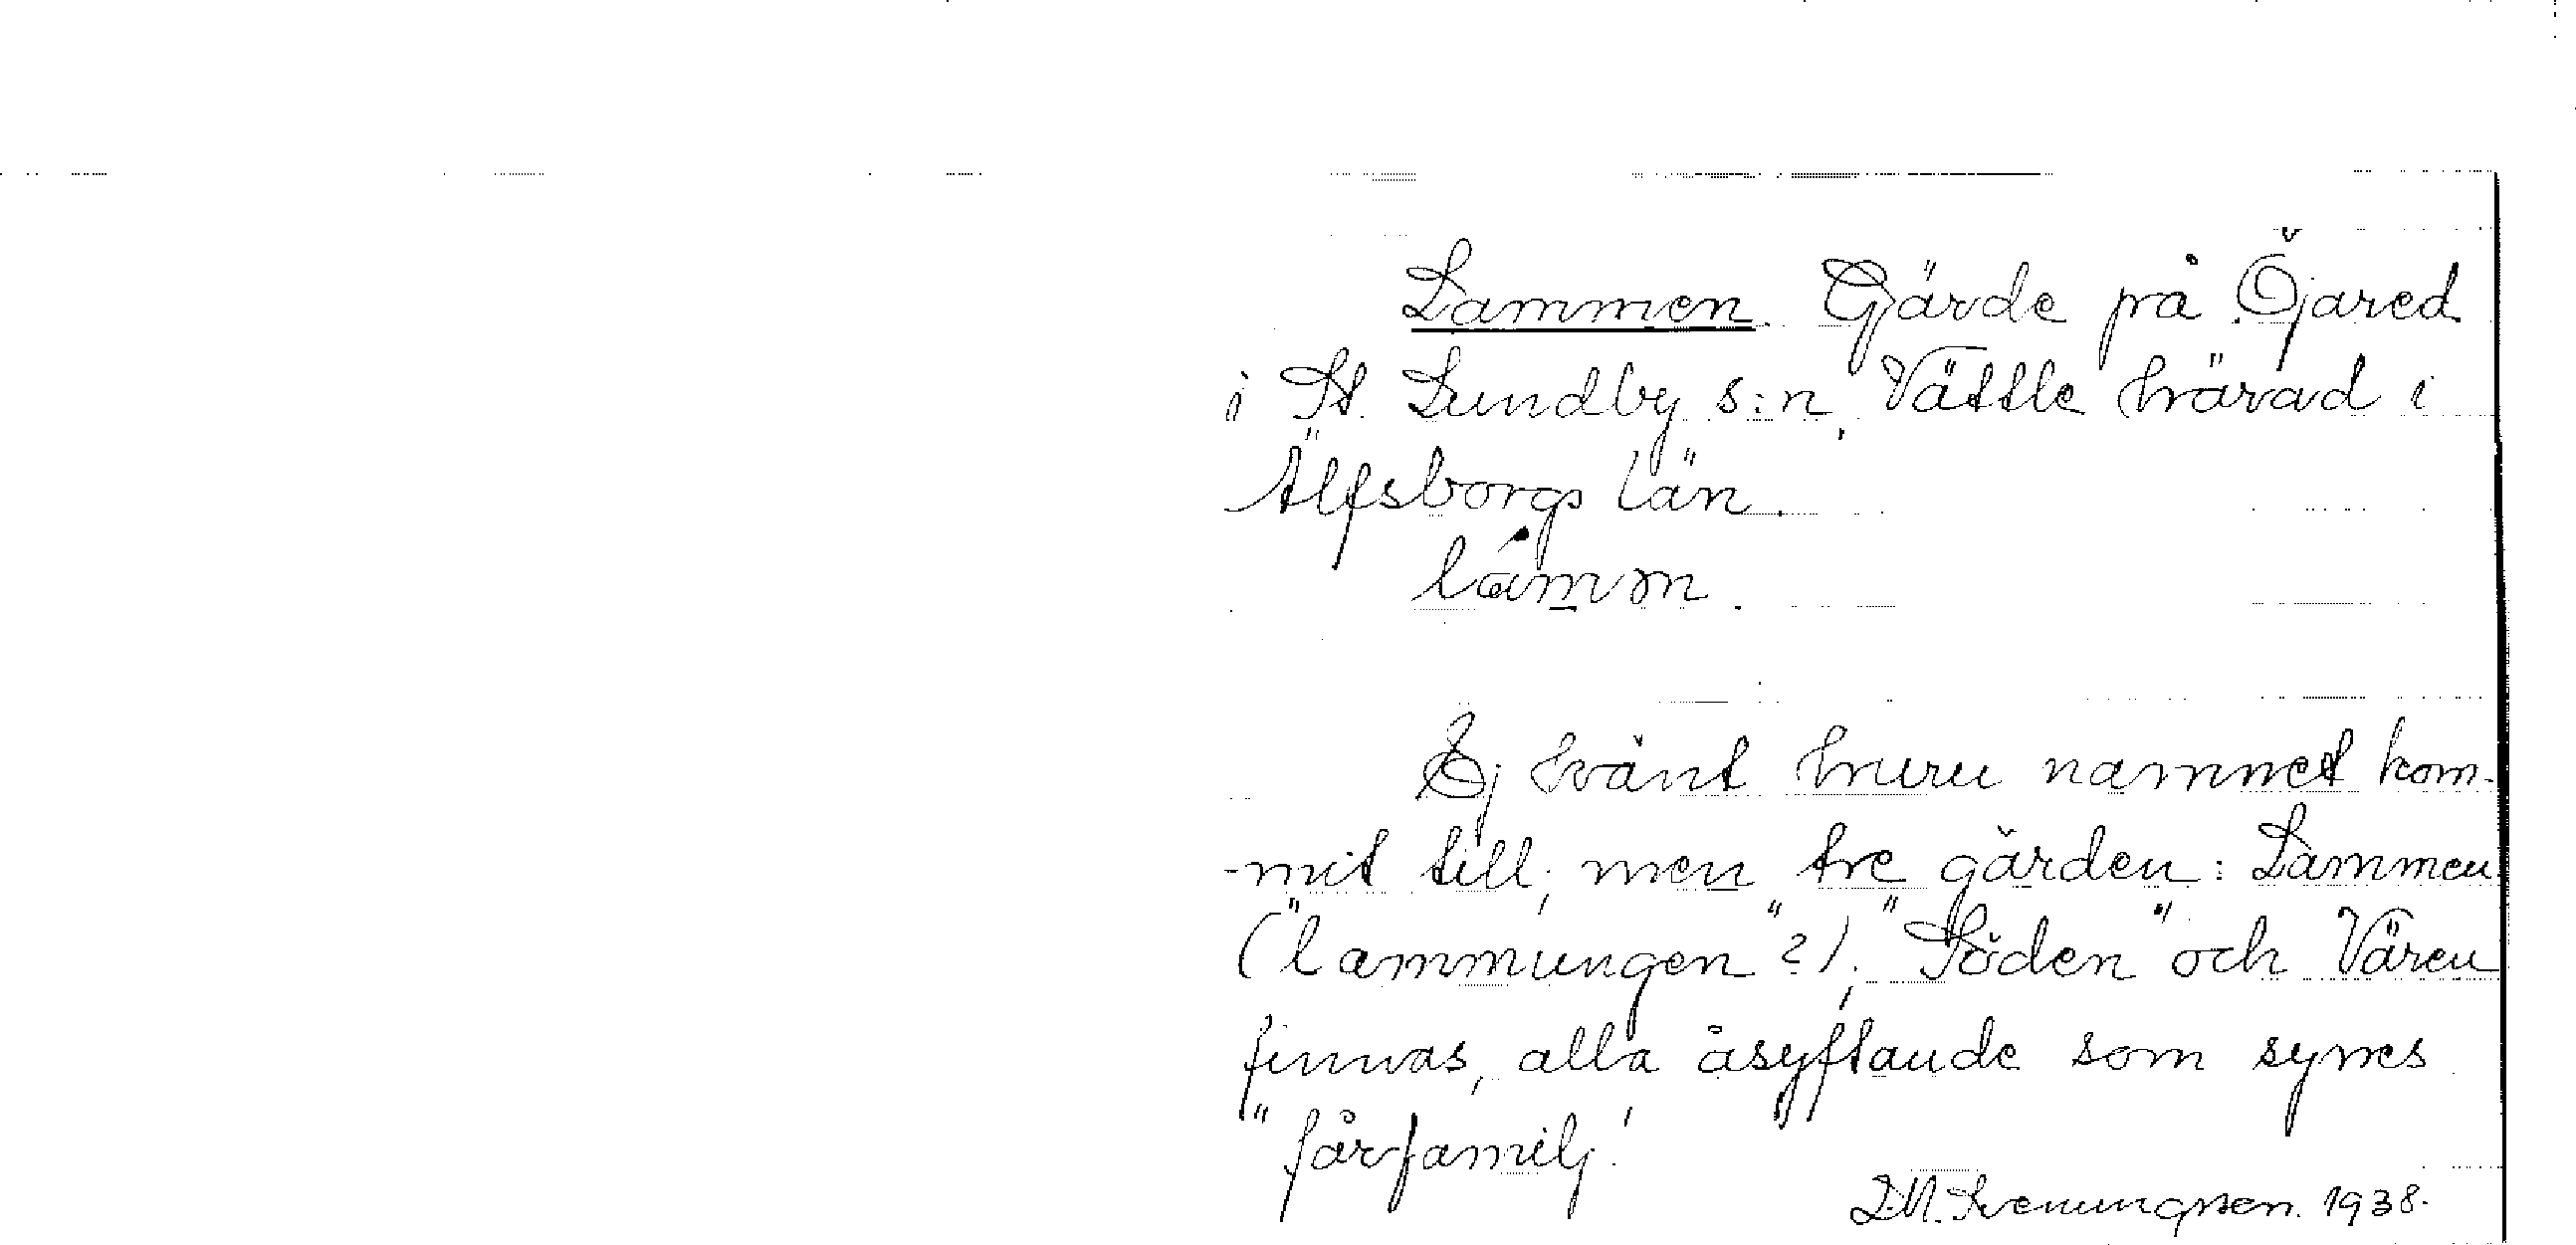 Lammen. Gärde på Öjared
i St. Lundby s:n, Vättle härad i
Älfsborgs län.
lámm̥.
Ej känt huru namnet kom-
-mit till; men tre gärden: Lammen
("lammungen"?), "Söden" och Vären
finnas, alla åsyftande som synes
"fårfamilj".
1938.